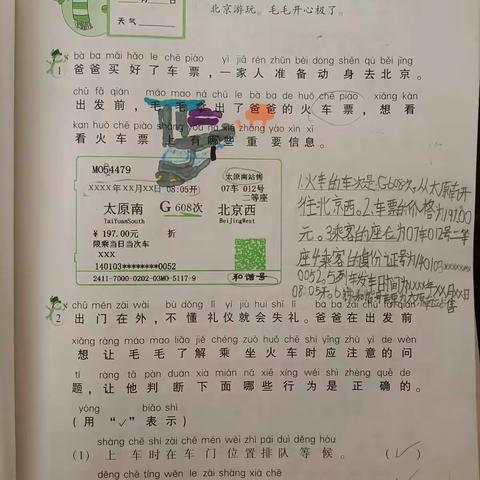 北京游玩。毛毛开心极了。
天气
bà ba mǎi hǎo le chē piào yì jiā rén zhǔn bèi dòng shēn qù běi jīng
1 爸爸买好了车票，一家人准备动身去北京。
chū fā qián máo mao ná chū le bà ba de huǒ chē piào xiǎng kàn
出发前，毛毛拿出了爸爸的火车票，想看
kan huǒ chē piào shàng yǒu nǎ xiē zhòng yào xìn xī
看火车票上有哪些重要信息。
M054479
太原南站售
XXXX年XX月XX日 08:05开
07车 012号
二等座
太原南 G 608次 北京西
TaiYuanSouth BeijingWest
¥ 197.00元 折
限乘当日当次车
XXX
140103********0052
2411-7000-0202-03M0-5117-9
和谐号
1.火车的车次是G608次,从太原南开
往北京西。2.车票的价格为197.00
元。3.乘客的座位为07车012号二等
座4.乘客的身份证号为140103********
0052。5.列车发车日期为XXXX年XX月XX日
08:05开。
chū mén zài wài bù dǒng lǐ yí jiù huì shī lǐ bà ba zài chū fā qián
2 出门在外，不懂礼仪就会失礼。爸爸在出发前
xiǎng ràng máo mao liǎo jiě chéng zuò huǒ chē shí yīng zhù yì de wèn
想让毛毛了解乘坐火车时应注意的问
tí ràng tā pàn duàn xià miàn nǎ xiē xíng wéi shì zhèng què de
题，让他判断下面哪些行为是正确的。
yòng biǎo shì
（用“✓”表示）
shàng chē shí zài chē mén wèi zhì pái duì děng hòu
(1) 上车时在车门位置排队等候。 (✓)
dēng chē tíng wěn le zài shàng xià chē